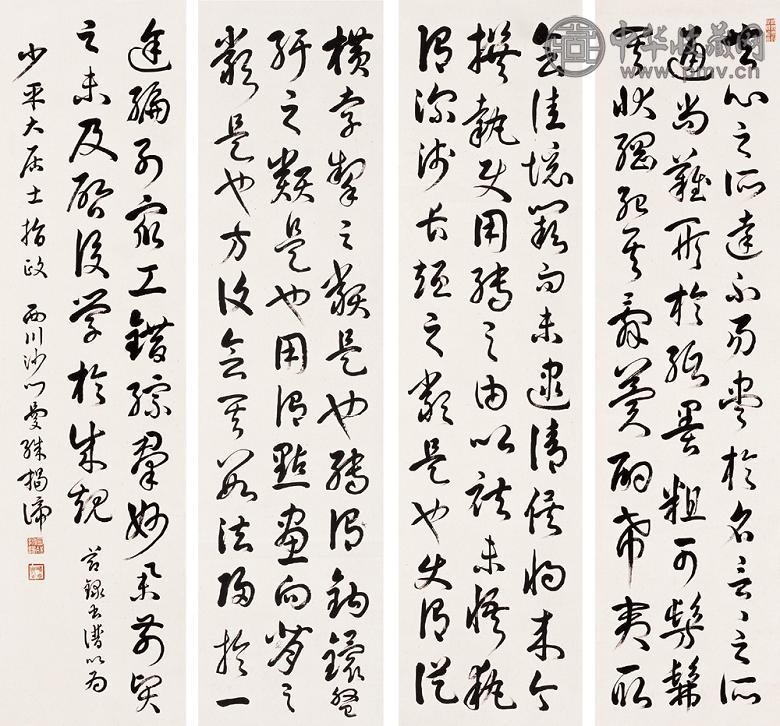 心之所達不易盡於名言言之所
通尚難形於紙墨粗可髣髴
其狀綱紀其辭冀酌希夷取
會佳境闕而未逮請俟將來今
撰執使用轉之由以祛未悟執
謂深淺長短之類是也使謂從
橫牽掣之類是也轉謂鉤鐶盤
紆之類是也用謂點畫向背之
類是也方復會其數法歸於一
途編列眾工錯綜群妙舉前賢
之未及啟後學於成規 節錄書譜以為
少平大居士指政 西川沙門曼殊揭諦
中华收藏网
www.pmv.cn